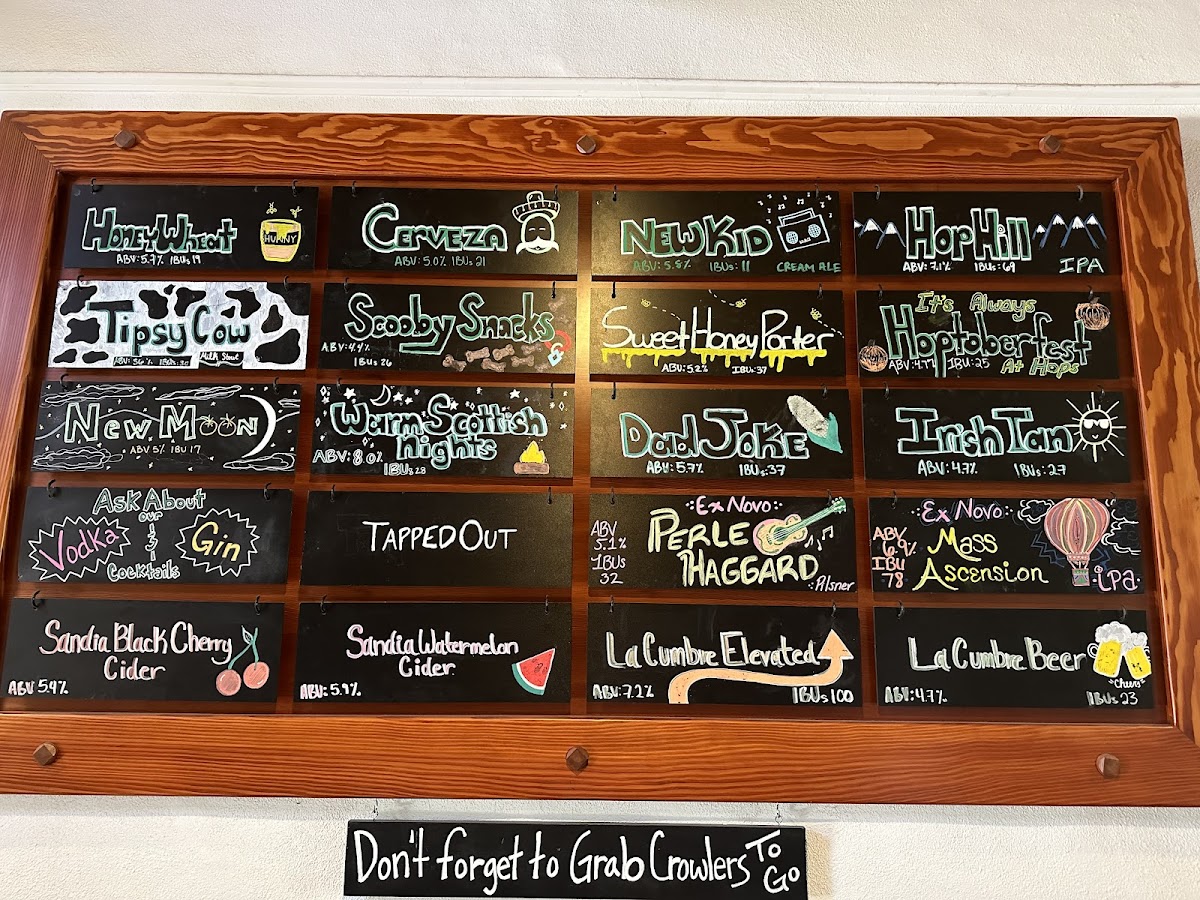 Honey Wheat
HUNNY
ABV: 5.7% IBUs 19
Cerveza
ABV: 5.0% IBUs 21
New Kid
ABV: 5.8% IBUs: 11 CREAM ALE
Hop Hill
ABV: 7.1% IBUs: 69 IPA
Tipsy Cow
ABV: 5.6% IBUs: 30 Milk Stout
Scooby Snacks
ABV: 4.4%
IBUs 26
Sweet Honey Porter
ABV: 5.2% IBUs: 37
It's Always
Hoptoberfest
ABV: 4.7% IBU: 25 At Hops
New Moon
ABV 5% IBU 17
Warm Scottish
Nights
ABV: 8.0%
IBUs 28
Dad Joke
ABV: 5.7% IBUs: 37
Irish Tan
ABV: 4.7% IBUs: 27
Ask About
our
Vodka & Gin
Cocktails
TAPPED OUT
Ex Novo:
ABV
5.1%
IBUs
32
Perle
Haggard
Pilsner
Ex Novo:
ABV
6.9%
IBU
78
Mass
Ascension
ipa
Sandia Black Cherry
Cider
ABV 5.9%
Sandia Watermelon
Cider
ABV: 5.9%
La Cumbre Elevated
ABV: 7.2% IBUs 100
La Cumbre Beer
"Cheers"
ABV: 4.7% IBUs 23
Don't forget to Grab Crowlers To Go